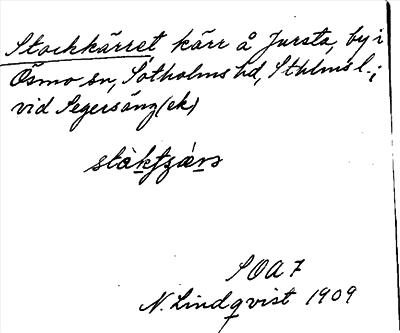 Stockkärret kärr å Jursta, by i
Ösmo sn, Sotholms hd, Sthlms l.;
vid Segersäng (ek)
SOA 7
N. Lindqvist 1909